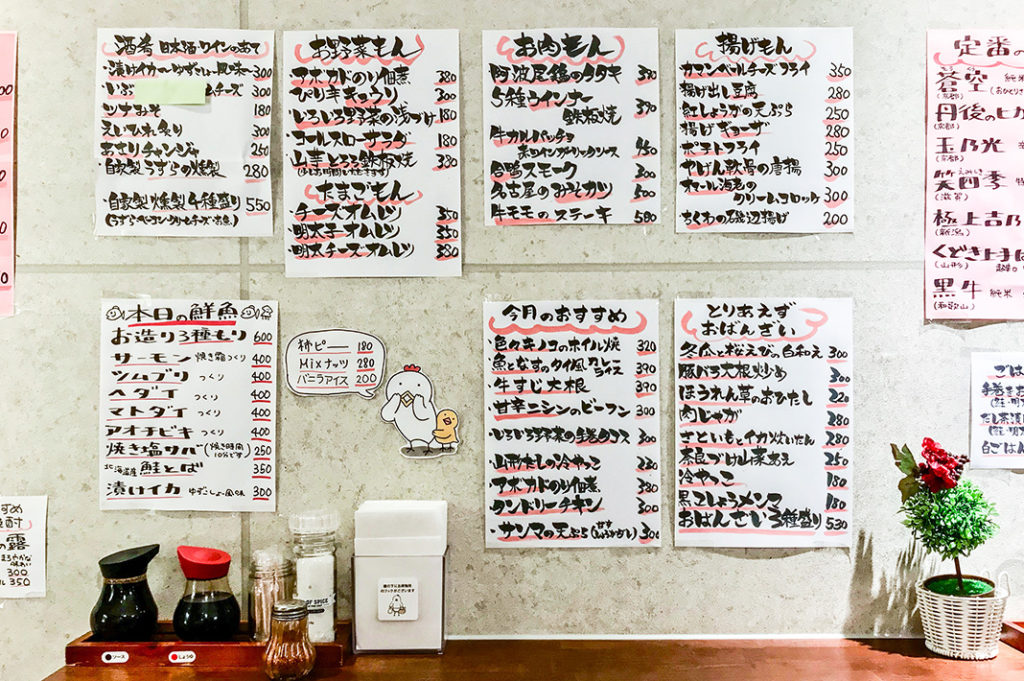 酒肴 日本酒・ワインのあて
・漬けイカ〜ゆずこしょー風味〜 300
・いぶ チーズ 300
・ツナみそ 180
・えいひれ炙り 300
・あさりチャンジャ 250
・自家製うずらの燻製 280
・自家製 燻製4種盛り 550
(うずら・ベーコン・クリームチーズ・
お野菜もん
・アボカドのり佃煮 380
・ぴり辛キュウリ 300
・いろいろ野菜の浅づけ 180
・コールスローサラダ 180
・山芋とろろ鉄板焼 380
たまごもん
・チーズオムレツ 350
・明太子オムレツ 350
・明太チーズオムレツ 380
お肉もん
・阿波尾鶏のタタキ 390
・5種ウインナー
鉄板焼 390
・牛カルパッチョ
赤ワインガーリックソース 450
・合鴨スモーク 300
・名古屋のみそカツ 500
・牛モモのステーキ 580
揚げもん
・カマンベールチーズフライ 350
・揚げ出し豆腐 280
・紅しょうがの天ぷら 250
・揚げギョーザ 280
・ポテトフライ 250
・やげん軟骨の唐揚 300
・オマール海老の
クリームコロッケ 300
・ちくわの磯辺揚げ 200
定番の
蒼空 純米
(京都)
丹後のヒカ
(京都)
玉乃光
(京都)
笑四季
(滋賀)
極上吉乃
(新潟)
くどき上手
(山形)
黒牛 純米
(和歌山)
本日の鮮魚
お造り3種もり 600
サーモン 焼き霜つくり 400
ツムブリ つくり 400
ヘダイ つくり 400
マトダイ つくり 400
アオチビキ つくり 400
焼き塩サバ (焼き時間10分です) 250
北海道産 鮭とば 350
漬けイカ ゆずこしょー風味 300
柿ピー 180
Mixナッツ 280
バニラアイス 200
今月のおすすめ
・色々キノコのホイル焼 320
・魚となすのタイ風カレーライス 390
・牛すじ大根 390
・甘辛ニシンのビーフン 300
・いろいろ野菜の手巻タコス 300
・山形だしの冷やっこ 280
・アボカドのり佃煮 380
・タンドリーチキン 300
・サンマの天ぷら 300
とりあえず
おばんざい
冬瓜と桜えびの白和え 300
豚バラ大根炒め 300
ほうれん草のおひたし 220
肉じゃが 280
さといもとイカ炊いたん 280
奈良づけ山菜あえ 250
冷やっこ 180
黒こしょうメンマ 180
おばんざい3種盛り 530
ごは
手巻きお
だし茶漬
白ごはん
すめ
酎
の露
まろやかな
味わい
300
ル 350
ソース
しょうゆ
OF SPICE